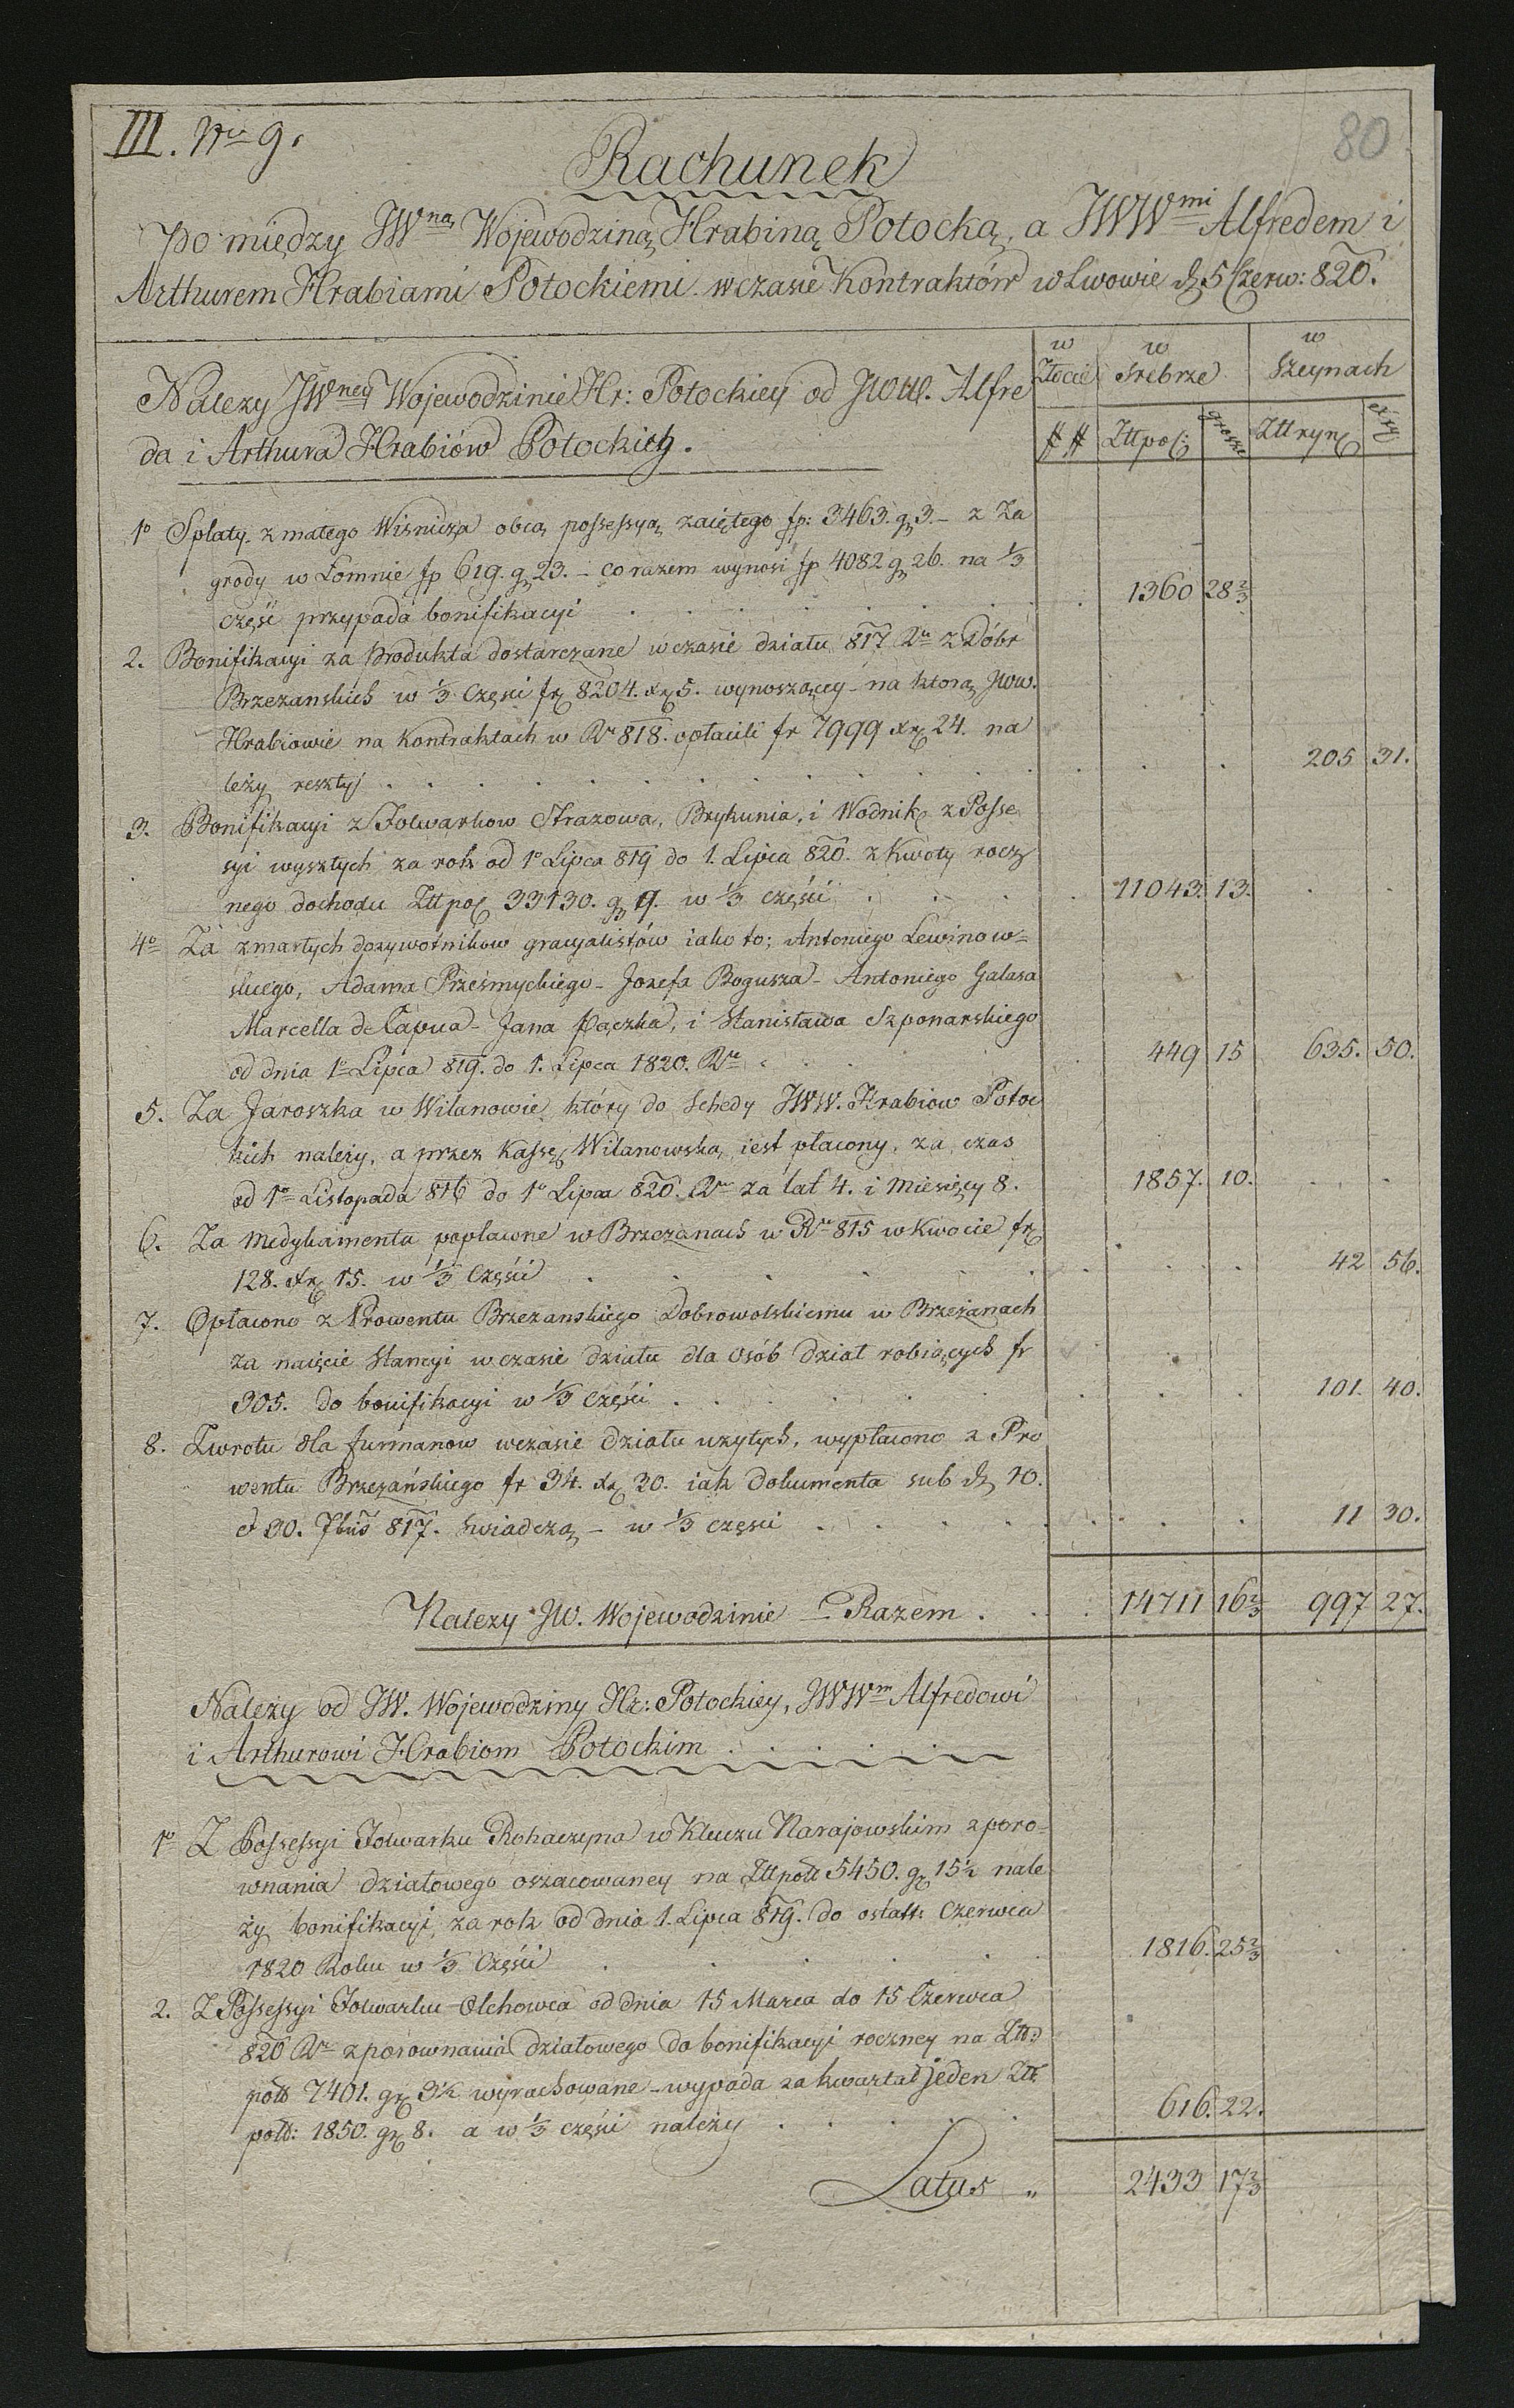 III. Nro 9.
80
Rachunek
Pomiędzy JWną Wojewodziną Hrabiną Potocką, a JWWmi Alfredem i
Arthurem Hrabiami Potockiemi w czasie Kontraktów w Lwowie d. 5 Czerw: 820.
w Złocie
w Srebrze
w Szeynach
## Zttpol: grosze Zttryn: xry
Nalezy JWney Wojewodzinie Hr: Potockiey od JWW. Alfre
da i Arthura Hrabiów Potockich.
1o Spłaty z małego Wisnicza obcą possessyą zaiętego fp: 3463. g 3. – z Za
grody w Łomnie fp 619. g 23. – co razem wynosi fp 4082 g 26. na 1/3
część przypada bonifikacyi . . . 1360 28 2/3
2. Bonifikacyi za Produkta dostarczane w czasie działu 817 Ru z Dóbr
Brzezanskich w 1/3 Części fr 8204. xr 5. wynoszącey – na ktorą JWW.
Hrabiowie na Kontraktach w Ru 818. opłacili fr 7999 xr 24. na
leży reszty . . . 205 31.
3. Bonifikacyi z Folwarkow Strazowa, Brykunia, i Wodnik z Posse
syi wyszłych za rok od 1o Lipca 819 do 1. Lipca 820. z Kwoty rocz
nego dochodu Zttpol 33130. g 9. w 1/3 części . . . 11043. 13.
4o Za zmarłych dozywotnikow gracyalistów iako to; Antoniego Lewinow=
skiego, Adama Prześmyckiego – Jozefa Bogusza – Antoniego Galasa
Marcella de Capua – Jana Pączka, i Stanisława Szponarskiego
od dnia 1o Lipca 819. do 1. Lipca 1820. Ru . . . 449 15 635. 50.
5. Za Jaroszka w Wilanowie, który do Schedy JWW. Hrabiow Potoc
kich należy, a przez Kassę Wilanowską iest płacony, za czas
od 1o Listopada 816 do 1o Lipca 820. Ru za lat 4. i Miesięcy 8. 1857. 10.
6. Za Medykamenta popłacone w Brzezanach w Ru 815 w Kwocie fr
128. xr 15. w 1/3 Części . . . 42 56.
7. Opłacono z Prowentu Brzezanskiego Dobrowolskiemu w Brzeżanach
za naięcie Stancyi w czasie działu dla osób dział robiących fr
305. do bonifikacyi w 1/3 części . . . 101. 40.
8. Zwrotu dla furmanow w czasie działu uzytych, wypłacono z Pro
wentu Brzeżańskiego fr 34. xr 30. iak Dokumenta sub d. 10.
et 30. 7bris 817. swiadczą – w 1/3 części . . . 11 30.
Nalezy JW. Wojewodzinie – Razem . . . 14711 16 2/3 997 27.
Należy od JW. Wojewodziny Hr: Potockiey, JWWm Alfredowi
i Arthurowi Hrabiom Potockim . . .
1o Z Possessyi Folwarku Rohaczyna w Kluczu Narajowskim z poro=
wnania działowego oszacowaney na Zttpoll 5450. gr 15 1/2 nale
ży bonifikacyi, za rok od dnia 1. Lipca 819. do ostatt: Czerwca
1820 Roku w 1/3 Części . . . 1816. 25 2/3
2. Z Possessyi Folwarku Olchowca od dnia 15 Marca do 15 Czerwca
820 Ru z porownania działowego do bonifikacyi roczney na Ztt:
poll 7401. gr 3 1/2 wyrachowane – wypada za kwartał jeden Ztt
poll: 1850. gr 8. a w 1/3 części należy . . . 616. 22.
Latus „ 2433 17 2/3